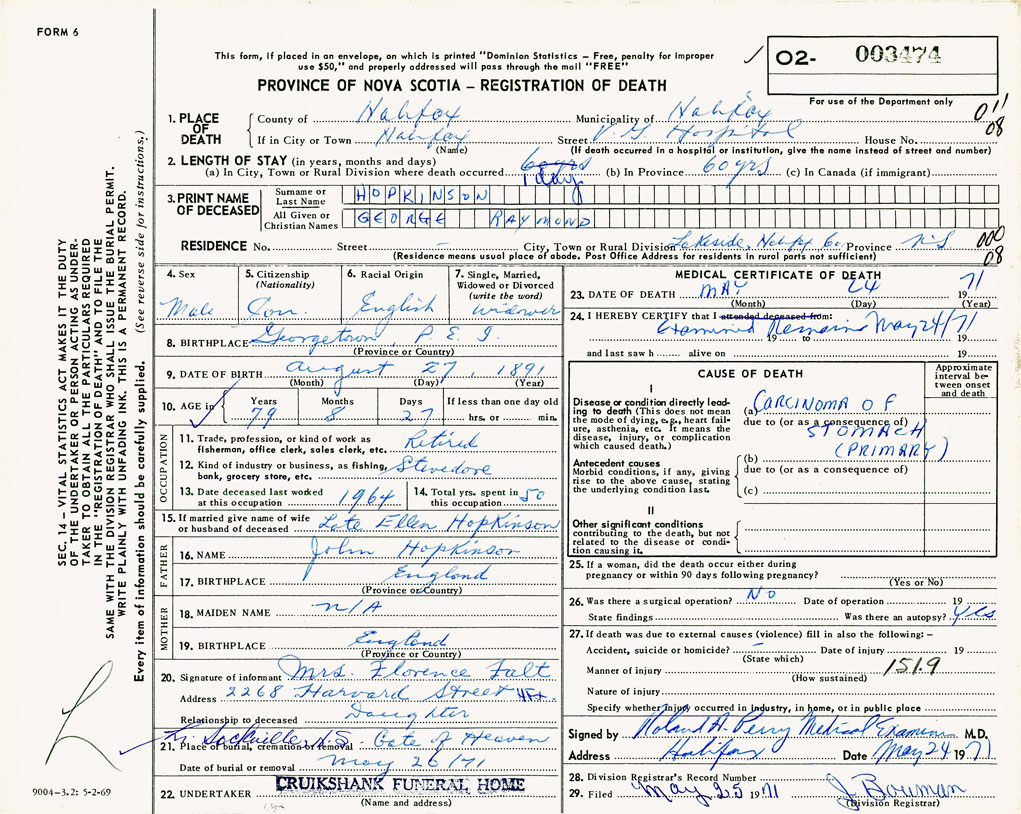 FORM 6
This form, if placed in an envelope, on which is printed "Dominion Statistics – Free, penalty for improper
use $50," and properly addressed will pass through the mail "FREE"
PROVINCE OF NOVA SCOTIA – REGISTRATION OF DEATH
O2- 003474
For use of the Department only
011
08
1. PLACE OF DEATH
County of Halifax Municipality of Halifax
If in City or Town Halifax Street V.G. Hospital House No.
(Name) (If death occurred in a hospital or institution, give the name instead of street and number)
2. LENGTH OF STAY (in years, months and days)
(a) In City, Town or Rural Division where death occurred 60yrs 1 day (b) In Province 60 yrs (c) In Canada (if immigrant)
3. PRINT NAME OF DECEASED
Surname or Last Name HOPKINSON
All Given or Christian Names GEORGE RAYMOND
RESIDENCE No. Street – City, Town or Rural Division Lakeside, Halifax Co. Province N.S
(Residence means usual place of abode. Post Office Address for residents in rural parts not sufficient)
000
08
4. Sex
Male
5. Citizenship
(Nationality)
Can.
6. Racial Origin
English
7. Single, Married,
Widowed or Divorced
(write the word)
Widower
8. BIRTHPLACE Georgetown, P.E.I.
(Province or Country)
9. DATE OF BIRTH August 27, 1891
(Month) (Day) (Year)
10. AGE in Years 79 Months 8 Days 27 If less than one day old
hrs. or min.
OCCUPATION
11. Trade, profession, or kind of work as
fisherman, office clerk, sales clerk, etc. Retired
12. Kind of industry or business, as fishing,
bank, grocery store, etc. Stevedore
13. Date deceased last worked
at this occupation 1964
14. Total yrs. spent in
this occupation 50
15. If married give name of wife
or husband of deceased Late Ellen Hopkinson
FATHER
16. NAME John Hopkinson
17. BIRTHPLACE England
(Province or Country)
MOTHER
18. MAIDEN NAME n/A
19. BIRTHPLACE England
(Province or Country)
20. Signature of informant Mrs. Florence Falt
Address 2268 Harvard Street Hfx.
Relationship to deceased Daughter
21. Place of burial, cremation or removal Lr. Sackville, N.S. Gate of Heaven
Date of burial or removal May 26/71
22. UNDERTAKER CRUIKSHANK FUNERAL HOME
(Name and address)
MEDICAL CERTIFICATE OF DEATH
23. DATE OF DEATH MAY 24 1971
(Month) (Day) (Year)
24. I HEREBY CERTIFY that I attended deceased from:
Examined Remains May 24/71
19 to 19
and last saw h alive on 19
CAUSE OF DEATH
Approximate
interval be-
tween onset
and death
I
Disease or condition directly lead-
ing to death (This does not mean
the mode of dying, e.g., heart fail-
ure, asthenia, etc. It means the
disease, injury, or complication
which caused death.)
(a) CARCINOMA OF
due to (or as a consequence of)
STOMACH
(PRIMARY)
Antecedent causes
Morbid conditions, if any, giving
rise to the above cause, stating
the underlying condition last.
(b)
due to (or as a consequence of)
(c)
II
Other significant conditions
contributing to the death, but not
related to the disease or condi-
tion causing it.
25. If a woman, did the death occur either during
pregnancy or within 90 days following pregnancy?
(Yes or No)
26. Was there a surgical operation? No Date of operation 19
State findings Was there an autopsy? Yes
27. If death was due to external causes (violence) fill in also the following: –
Accident, suicide or homicide? – Date of injury 19
(State which)
Manner of injury 151.9
(How sustained)
Nature of injury
Specify whether injury occurred in industry, in home, or in public place
Signed by Roland A. Perry Medical Examiner M.D.
Address Halifax Date May 24 1971
28. Division Registrar's Record Number
29. Filed May 25 1971 J. Bowman
(Division Registrar)
SEC. 14 – VITAL STATISTICS ACT MAKES IT THE DUTY
OF THE UNDERTAKER OR PERSON ACTING AS UNDER-
TAKER TO OBTAIN ALL THE PARTICULARS REQUIRED
IN THE "REGISTRATION OF DEATH" AND TO FILE THE
SAME WITH THE DIVISION REGISTRAR WHO SHALL ISSUE THE BURIAL PERMIT.
WRITE PLAINLY WITH UNFADING INK. THIS IS A PERMANENT RECORD.
Every item of information should be carefully supplied. (See reverse side for instructions.)
9004-3.2: 5-2-69